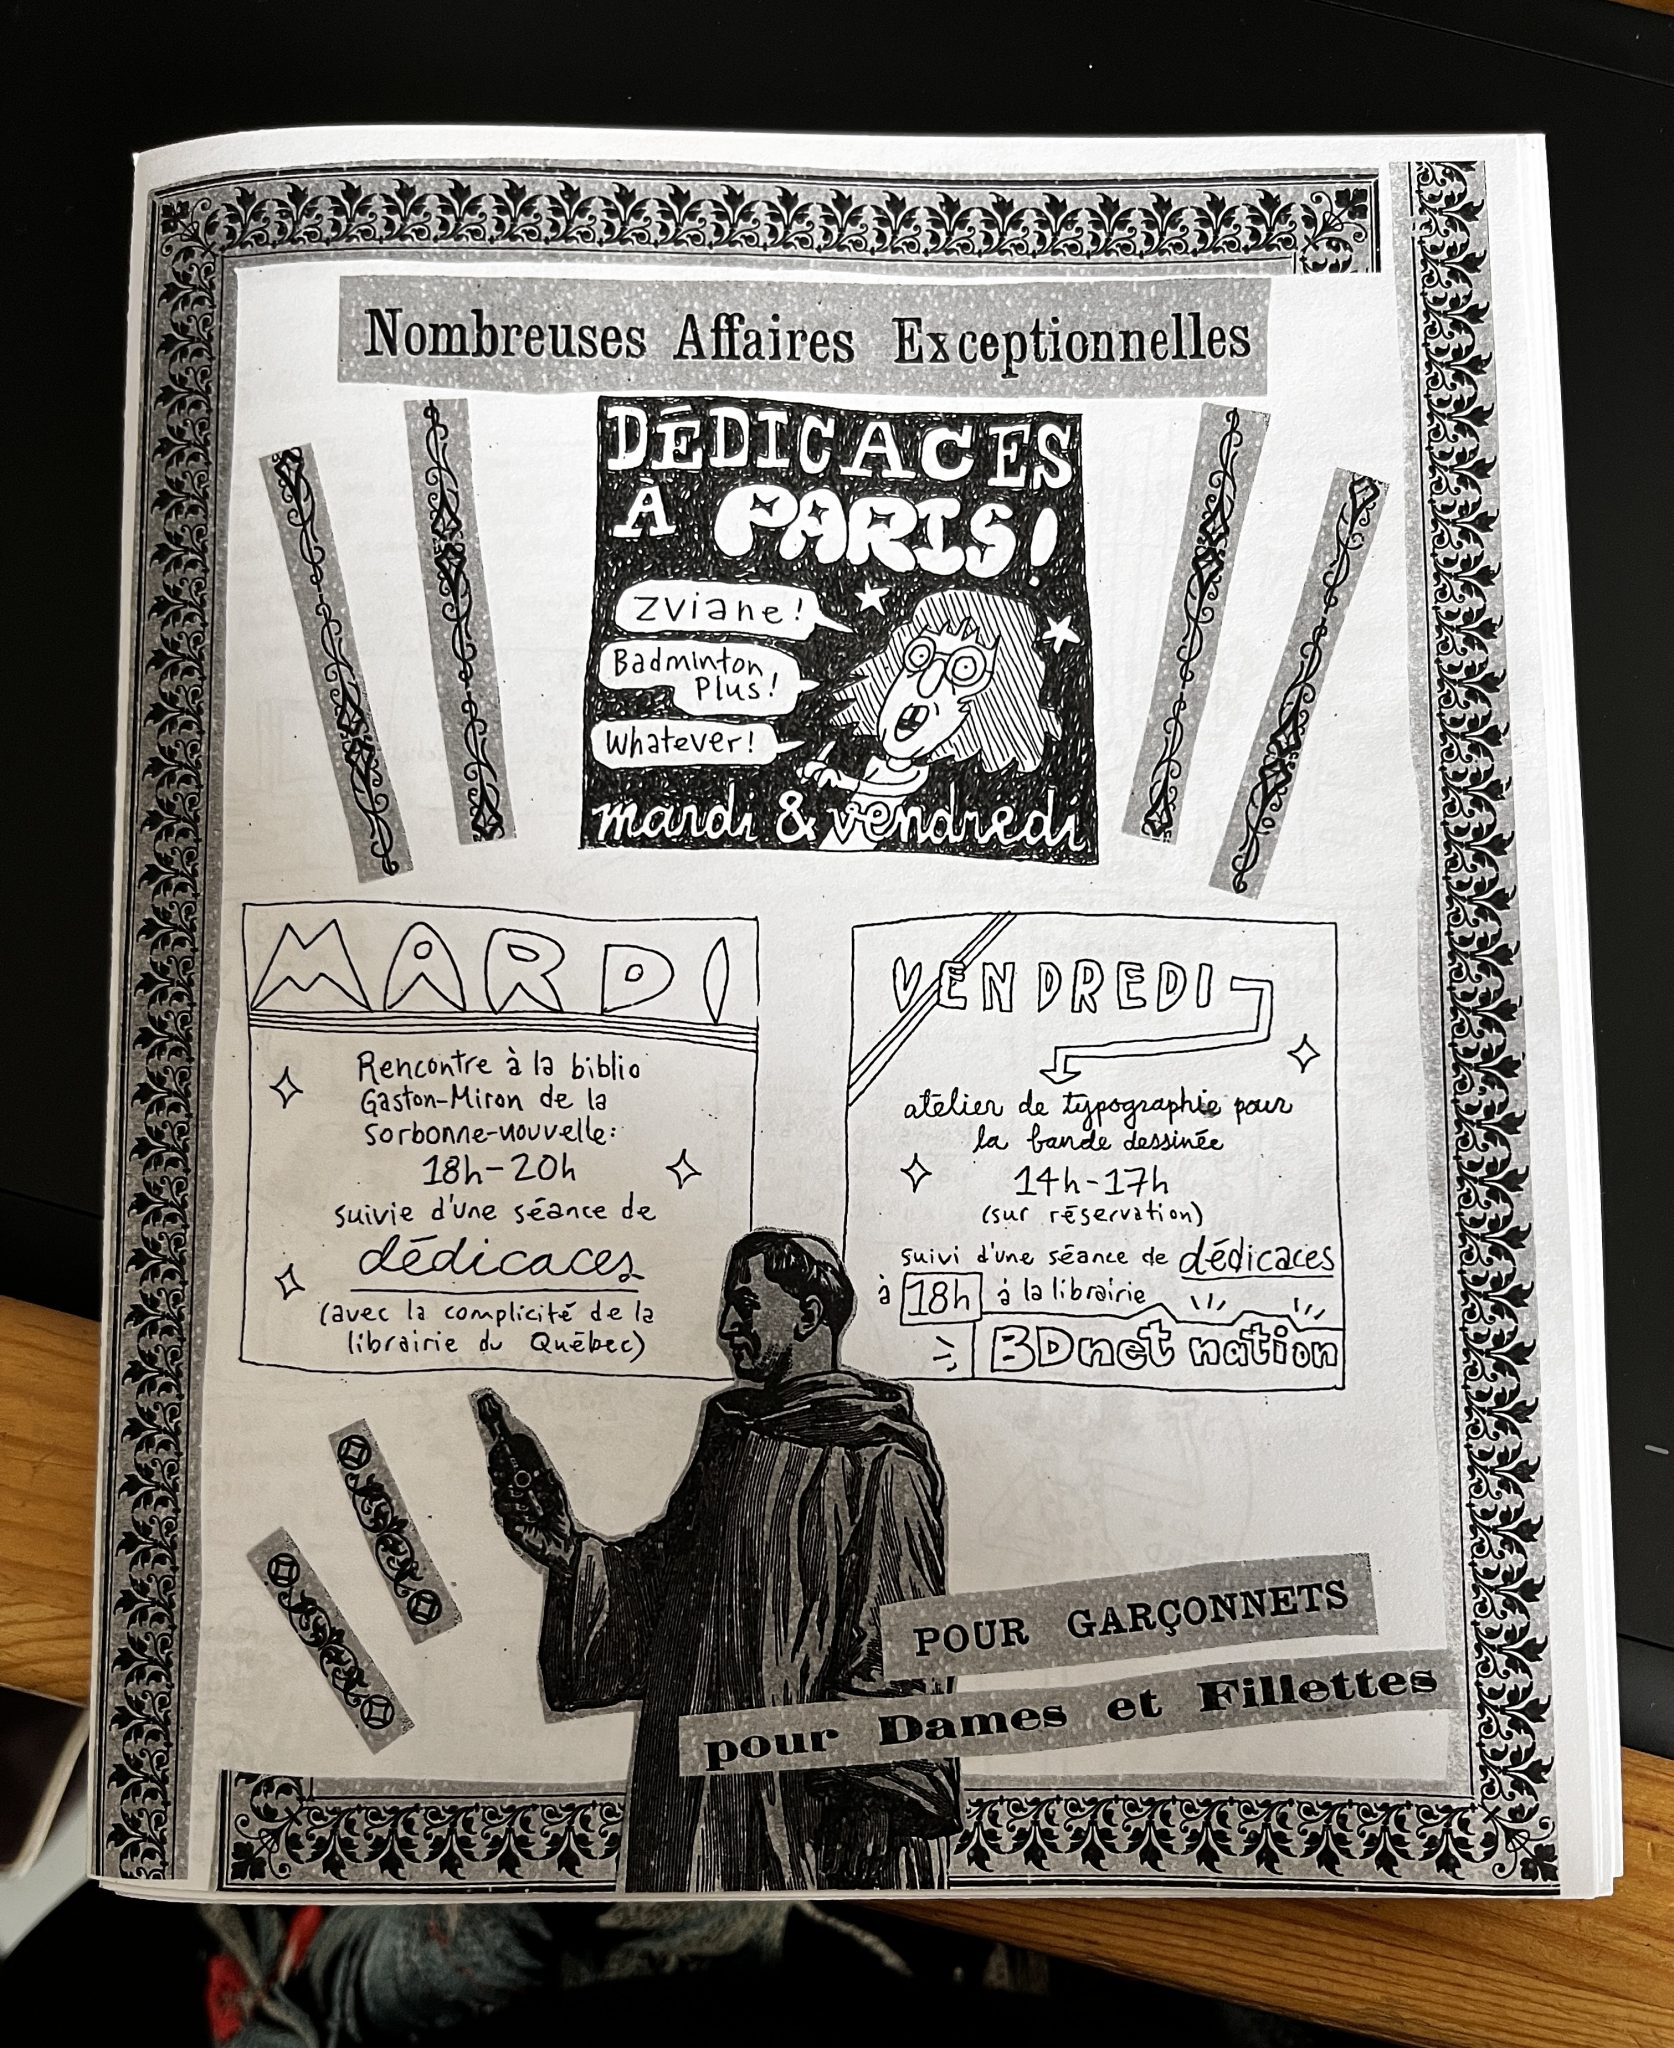 Nombreuses Affaires Exceptionnelles
DÉDICACES
À PARIS!
Zviane!
Badminton
Plus!
Whatever!
mardi & vendredi
MARDI
Rencontre à la biblio
Gaston-Miron de la
Sorbonne-nouvelle:
18h-20h
suivie d'une séance de
dédicaces
(avec la complicité de la
librairie du Québec)
VENDREDI
atelier de typographie pour
la bande dessinée
14h-17h
(sur réservation)
suivi d'une séance de dédicaces
à 18h à la librairie
BDnet nation
POUR GARÇONNETS
pour Dames et Fillettes